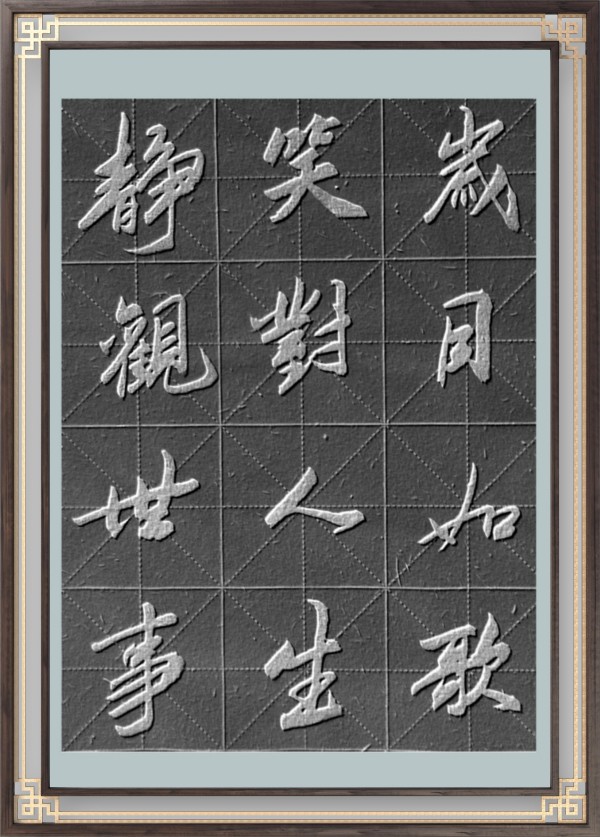 歲月如歌
笑對人生
靜觀世事